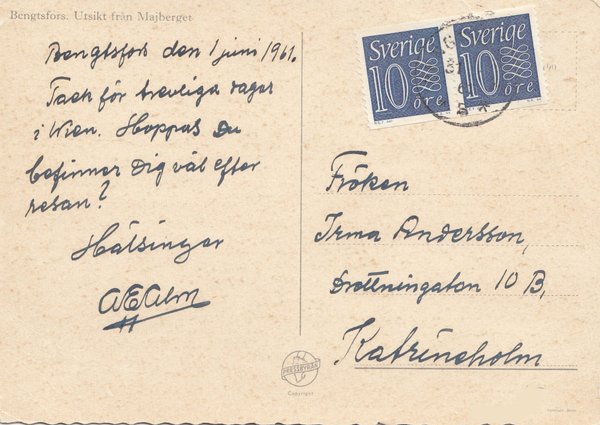 Bengtsfors. Utsikt från Majberget
Bengtsfors den 1 juni 1961.
Tack för trevliga dagar
i Wien. Hoppas Du
befinner Dig väl efter
resan?
Hälsingar
AEAlm
Sverige
10
öre
Sverige
10
öre
Fröken
Irma Andersson,
Drottninggatan 10 B,
Katrineholm
PRESSBYRÅN
Copyright